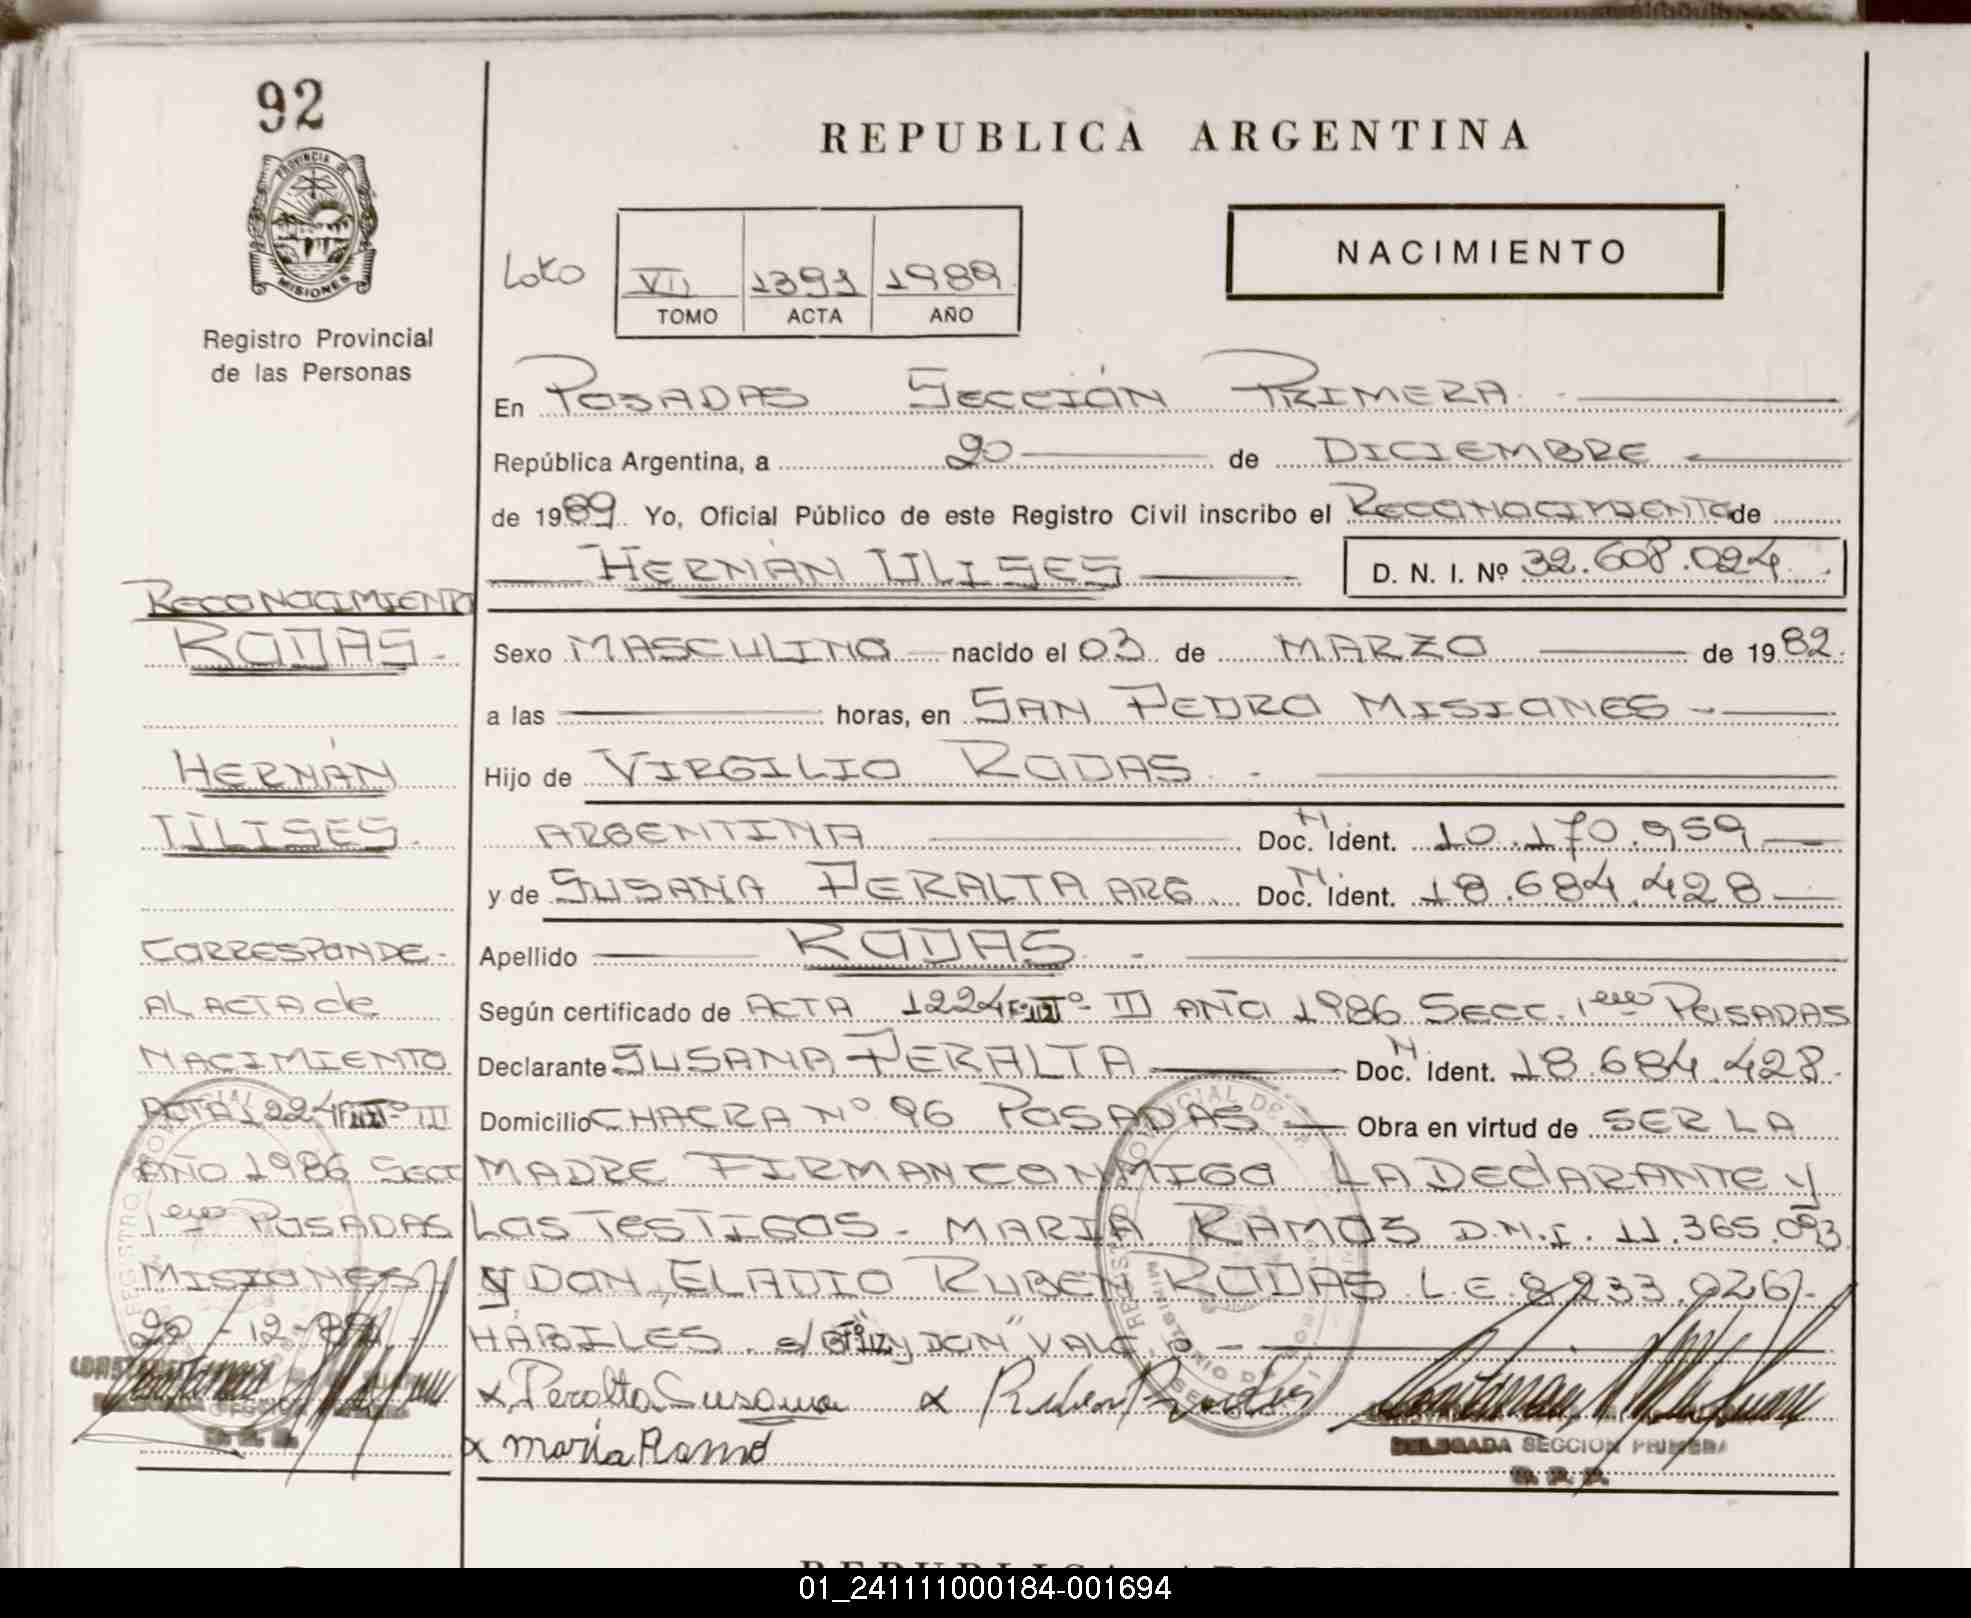 92
PROVINCIA DE
MISIONES
Registro Provincial
de las Personas
REPUBLICA ARGENTINA
NACIMIENTO
VII 1391 1989
TOMO ACTA AÑO
En POSADAS SECCIÓN PRIMERA
República Argentina, a 20 de DICIEMBRE
de 1989 Yo, Oficial Público de este Registro Civil inscribo el RECONOCIMIENTO de
HERNÁN ULISES D. N. I. Nº 32.608.024
RECONOCIMIENTO
RODAS
HERNÁN
ULISES
CORRESPONDE
AL ACTA de
NACIMIENTO
ACTA 1224 Tº III
AÑO 1986 SECC
1era POSADAS
MISIONES
20-12-89
Sexo MASCULINO nacido el 03 de MARZO de 1982
a las horas, en SAN PEDRO MISIONES
Hijo de VIRGILIO RODAS
ARGENTINA Doc. N. Ident. 10.170.959
y de SUSANA PERALTA ARG Doc. N. Ident. 18.684.428
Apellido RODAS
Según certificado de ACTA 1224 Tº III AÑO 1986 SECC. 1era POSADAS
Declarante SUSANA PERALTA Doc. N. Ident. 18.684.428
Domicilio CHACRA Nº 96 POSADAS Obra en virtud de SER LA
MADRE FIRMAN CONMIGO LA DEClARANTE y
LOS TESTIGOS - MARIA RAMOS D.N.I. 11.365.093
y DON ELADIO RUBEN RODAS L.E. 8.233.026
HÁBILES. y DON" VALE
x Peralta Susana x Ruben Rodas
x maria Ramo
DELEGADA SECCION PRIMERA
R. P. P.
01_241111000184-001694